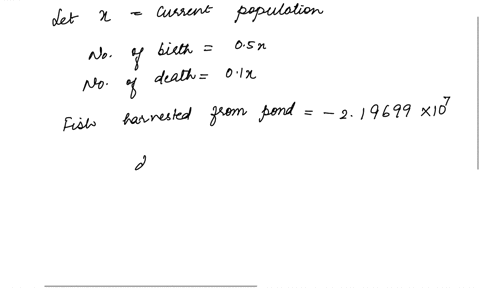 Let x = Current population
No. of birth = 0.5x
No. of death = 0.1x
Fish harvested from pond = - 2.19699 × 10⁷